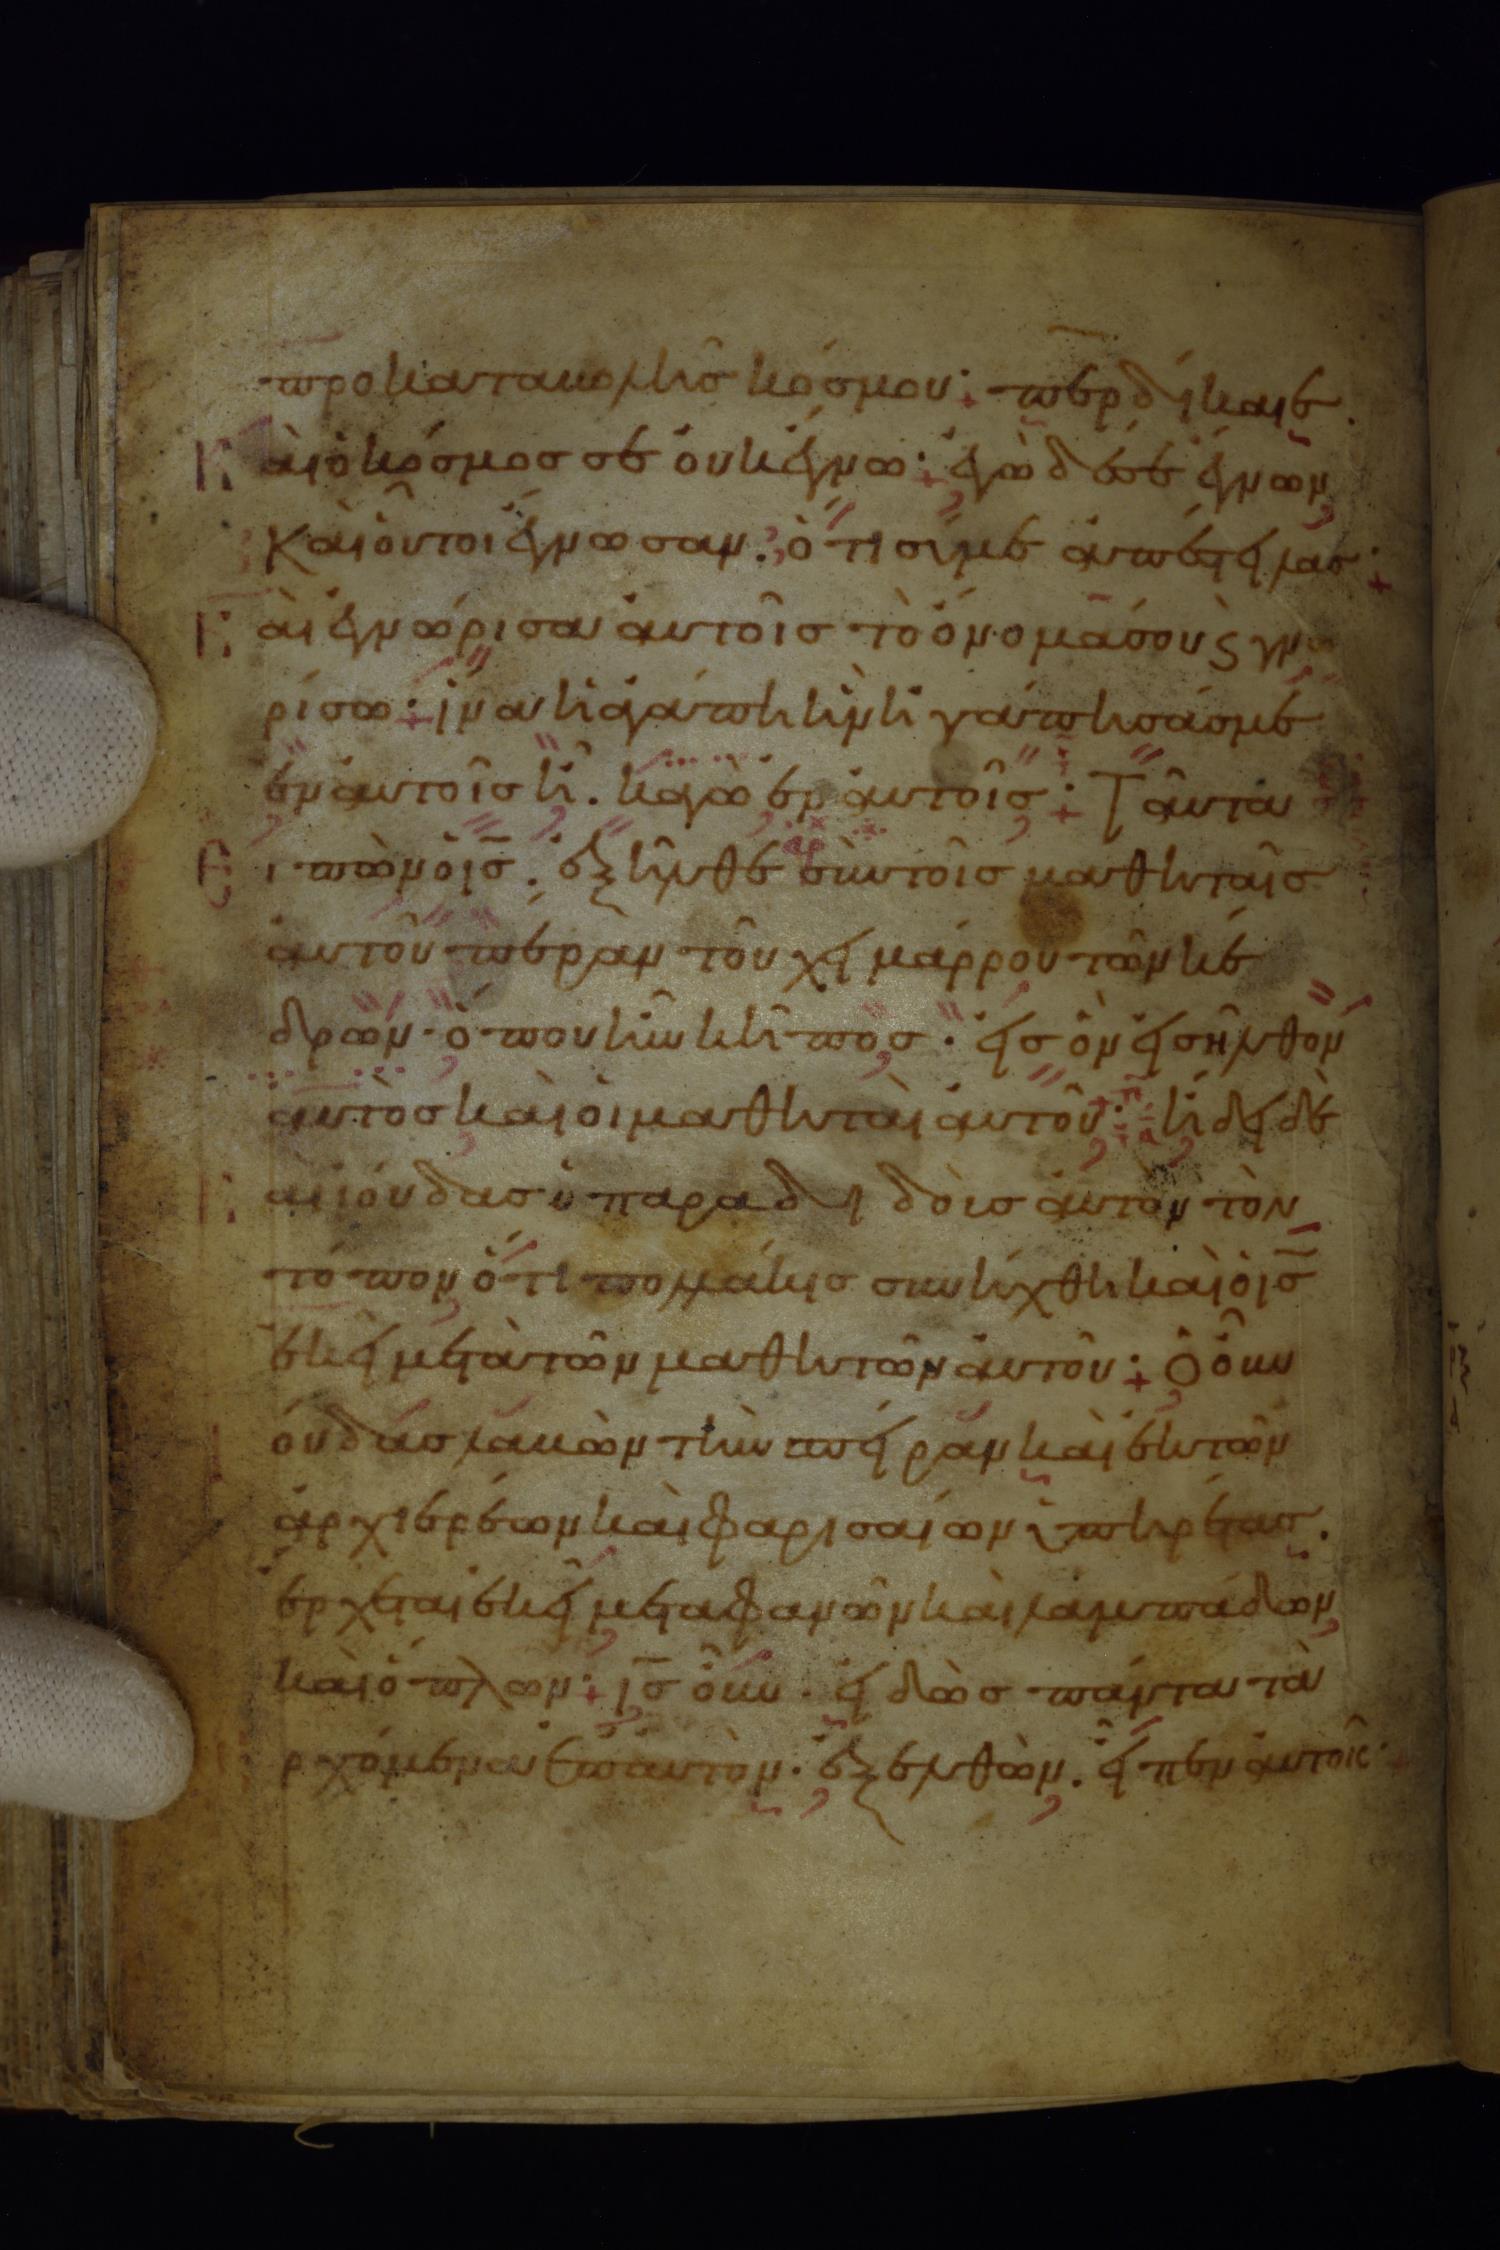 προ κατακολῆσ κόσμου· περ δίκαιε.
Κὰι ὁ κόσμοσ σε ὀυκ ἔγνω· ἐγὼ δέ σε ἔγνων
Κὰι ὁυτοι ἔγνωσαν. ὅτι σύ με ἀπέστειλασ·
Κὰι ἐγνώρισα ἀυτοῖσ τὸ ὄνομά σου ϛ γνω
ρίσω· ἵνα ἡ ἀγάπη ἣν ἠγάπησάσ με
ἐν ἀυτοῖσ ἦ. κἀγὼ ἐν ἀυτοῖσ· Ταῦτα
Ειπὼν ὁ ισ. ἐξῆλθε σὺν τοῖσ μαθηταῖσ
ἀυτοῦ πέραν τοῦ χειμάρρου τῶν κέ
δρων· ὅπου ἦν κῆποσ· εἰσ ὃν εἰσῆλθον
αὐτὸσ κὰι ὁι μαθητὰι ἀυτοῦ· ἤδει δὲ
Και ιούδασ ὁ παραδιδοὺσ ἀυτὸν τὸν
τόπον ὅτι πολλάκισ συνήχθη κὰι ὁ ισ
ἐκεῖ μετὰ τῶν μαθητῶν ἀυτοῦ· Ὁ οὖν
Ιούδασ λαβὼν τὴν σπεῖραν κὰι ἐκ τῶν
ἀρχιερέων κὰι φαρισαίων ὑπηρέτασ.
ἔρχεται ἐκεῖ μετα φανῶν κὰι λαμπάδων
κὰι ὅπλων· ισ οὖν. εἰδὼσ πάντα τὰ
ἐρχόμενα ἐπ ἀυτὸν. ἐξελθὼν. εἶπεν ἀυτοῖσ·